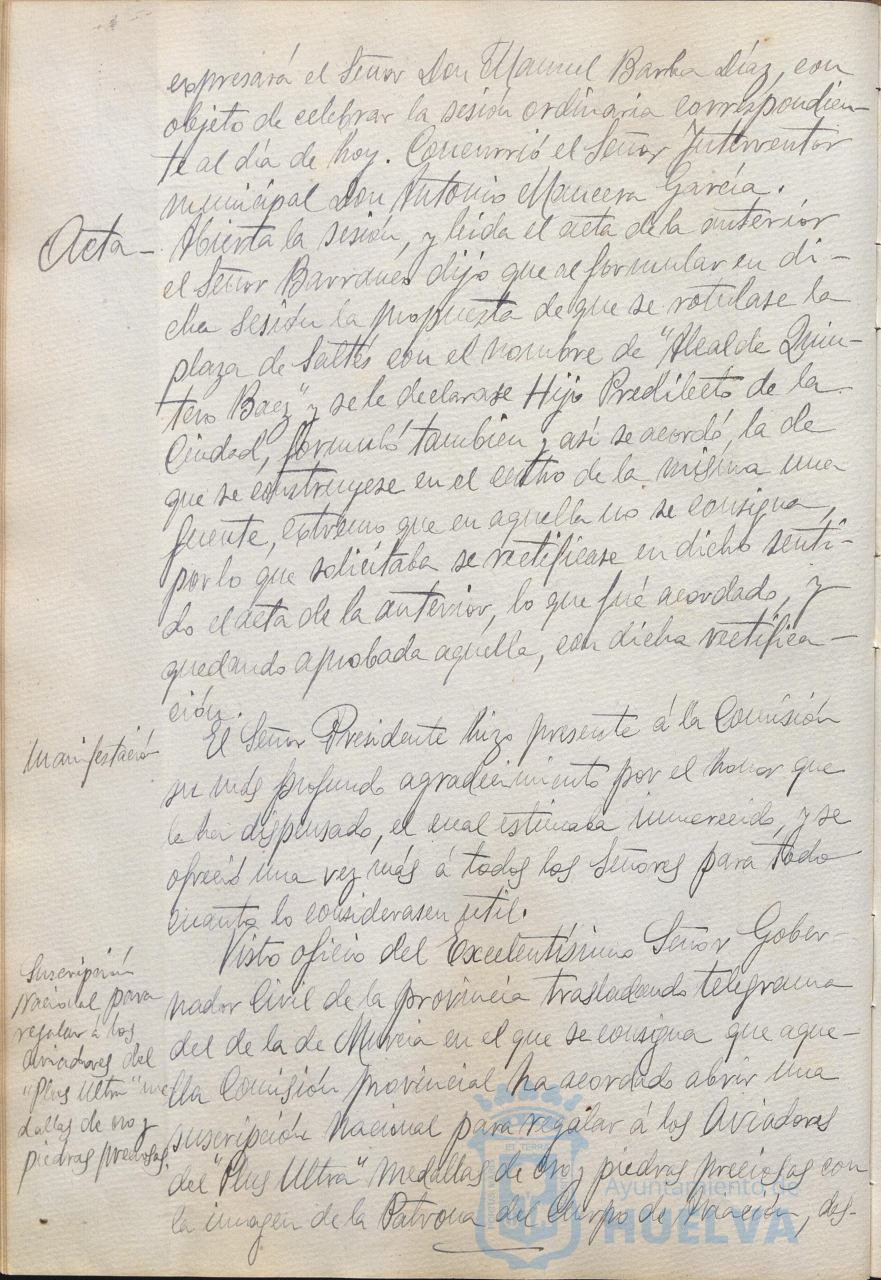 expresará el Señor Don Manuel Barba Díaz, con
objeto de celebrar la sesión ordinaria correspondien-
te al día de hoy. Concurrió el Señor Interventor
municipal Don Antonio Mancera García.
Acta-
Abierta la sesión, y leida el acta de la anterior
el Señor Barranco dijo que al formular en di-
cha sesión la propuesta de que se rotulase la
plaza de Saltés con el nombre de "Alcalde Quin-
tero Baez" y se le declarase Hijo Predilecto de la
Ciudad, formuló tambien, y así se acordó, la de
que se construyese en el centro de la misma una
fuente, extremo que en aquella no se consigna,
por lo que solicitaba se rectificase en dicho senti-
do el acta de la anterior, lo que fué acordado, y
quedando aprobada aquella, con dicha rectifica-
ción.
Manifestación
El Señor Presidente hizo presente á la Comisión
su más profundo agradecimiento por el honor que
le ha dispensado, el cual estimaba inmerecido, y se
ofreció una vez más á todos los Señores para todo
cuanto lo considerasen útil.
Suscripción
Nacional para
regalar á los
aviadores del
"Plus Ultra" me
dallas de oro y
piedras preciosas.
Visto oficio del Excelentísimo Señor Gober-
nador Civil de la provincia trasladando telegrama
del de la de Murcia en el que se consigna que aque-
lla Comisión provincial ha acordado abrir una
suscripción Nacional para regalar á los Aviadores
del "Plus Ultra" medallas de oro y piedras preciosas con
la imagen de la Patrona del Cuerpo de Aviación, des-
Ayuntamiento de
HUELVA